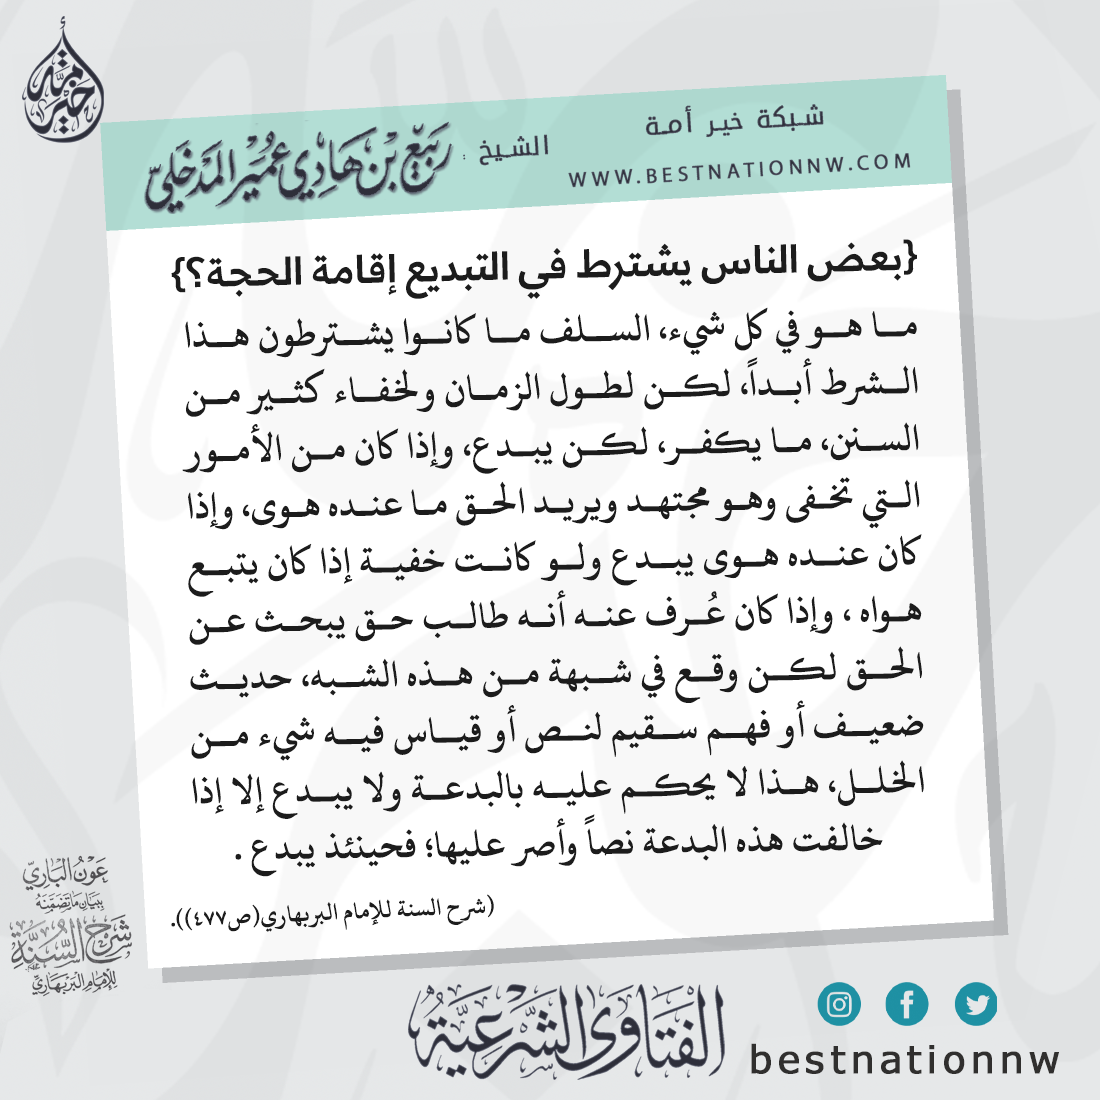 خير أمة
شبكة خير أمة
WWW.BESTNATIONNW.COM
الشيخ : ربيع بن هادي عمير المدخلي
{بعض الناس يشترط في التبديع إقامة الحجة؟}
ما هو في كل شيء، السلف ما كانوا يشترطون هذا
الشرط أبداً، لكن لطول الزمان ولخفاء كثير من
السنن، ما يكفر، لكن يبدع، وإذا كان من الأمور
التي تخفى وهو مجتهد ويريد الحق ما عنده هوى، وإذا
كان عنده هوى يبدع ولو كانت خفية إذا كان يتبع
هواه ، وإذا كان عُرف عنه أنه طالب حق يبحث عن
الحق لكن وقع في شبهة من هذه الشبه، حديث
ضعيف أو فهم سقيم لنص أو قياس فيه شيء من
الخلل، هذا لا يحكم عليه بالبدعة ولا يبدع إلا إذا
خالفت هذه البدعة نصاً وأصر عليها؛ فحينئذ يبدع .
(شرح السنة للإمام البربهاري(ص٤٧٧)).
عَوْنُ البَارِيّ
بِبَيَانِ مَا تَضَمَّنَهُ
شَرْحُ السُّنَّةِ
لِلْإِمَامِ البَرْبَهَارِيّ
الفَتَاوَى الشَّرْعِيَّةُ
bestnationnw